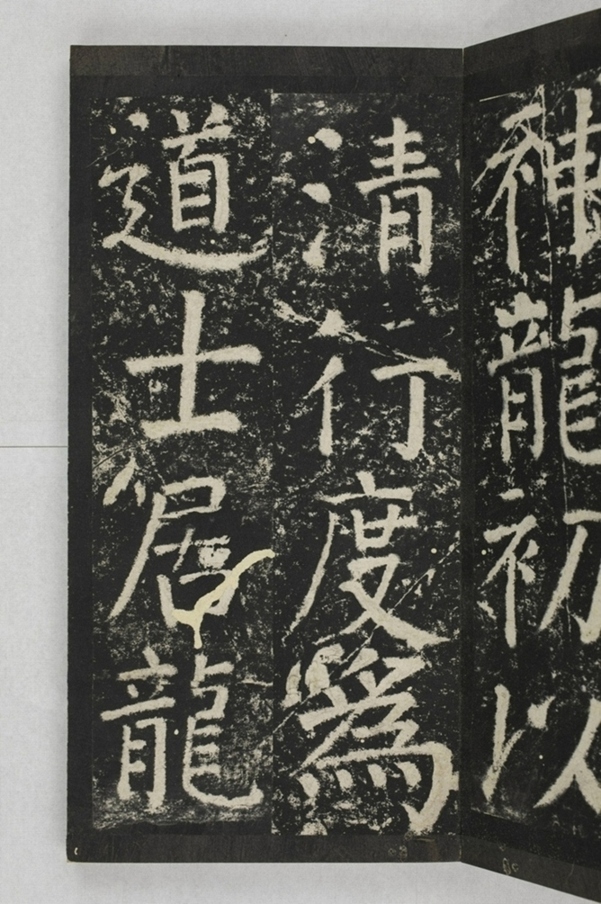 神龍初以
清行度爲
道士居龍